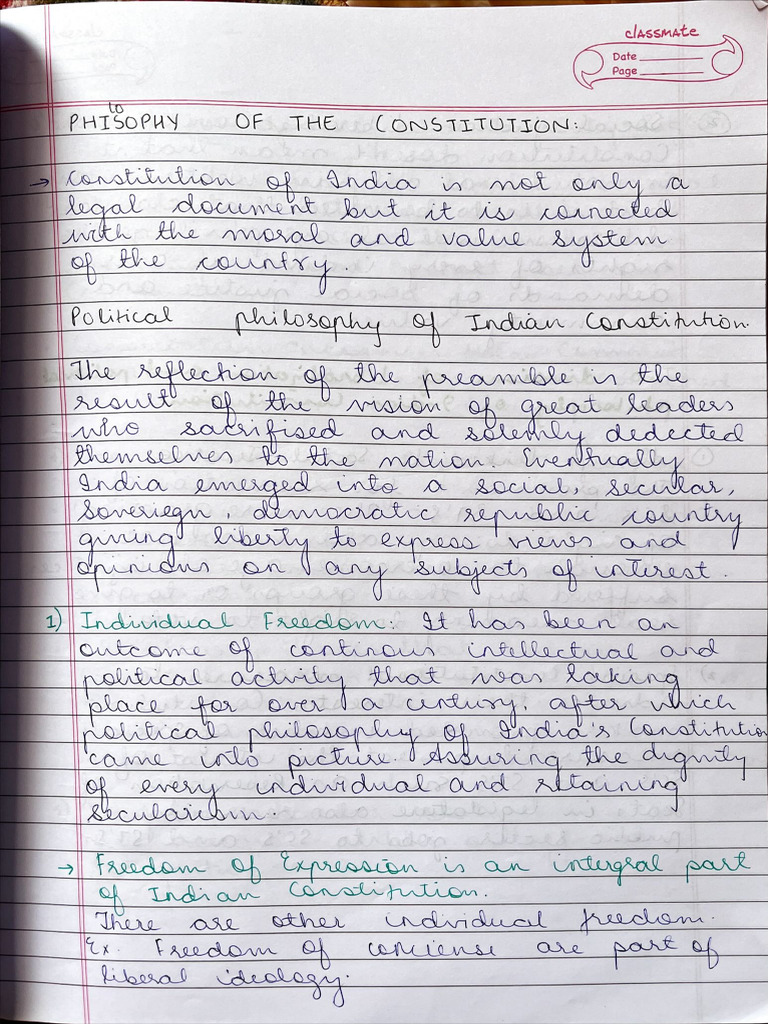 classmate
Date
Page
lo
PHISOPHY OF THE CONSTITUTION:
→ Constitution of India is not only a
legal document but it is connected
with the moral and value system
of the country.
Political philosophy of Indian Constitution.
The reflection of the preamible is the
result of the vision of great leaders
who sacrifised and solemly dedected
themselves to the nation. Eventually
India emerged into a social, secular,
Soveriegn, democratic republic country
giving liberty to express views and
opinions on any subjects of interest.
1) Individual Freedom: It has been an
outcome of continous intellectual and
political activity that was taking
place for over a century, after which
political philosophy of India's Constitution
came into picture. Assuring the dignity
of every individual and retaining
secularism.
→ Freedom of Expression is an intergral part
of Indian Constitution.
There are other individual freedom.
Ex. Freedom of conciense are part of
liberal ideology.